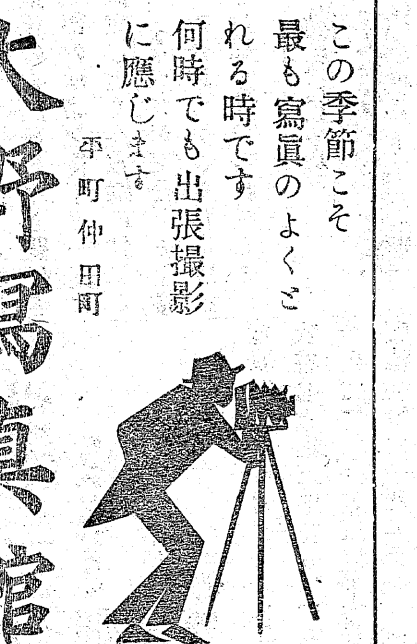 この季節こそ
最も寫眞のよくと
れる時です
何時でも出張撮影
に應じます
平町仲田町
大野寫眞館